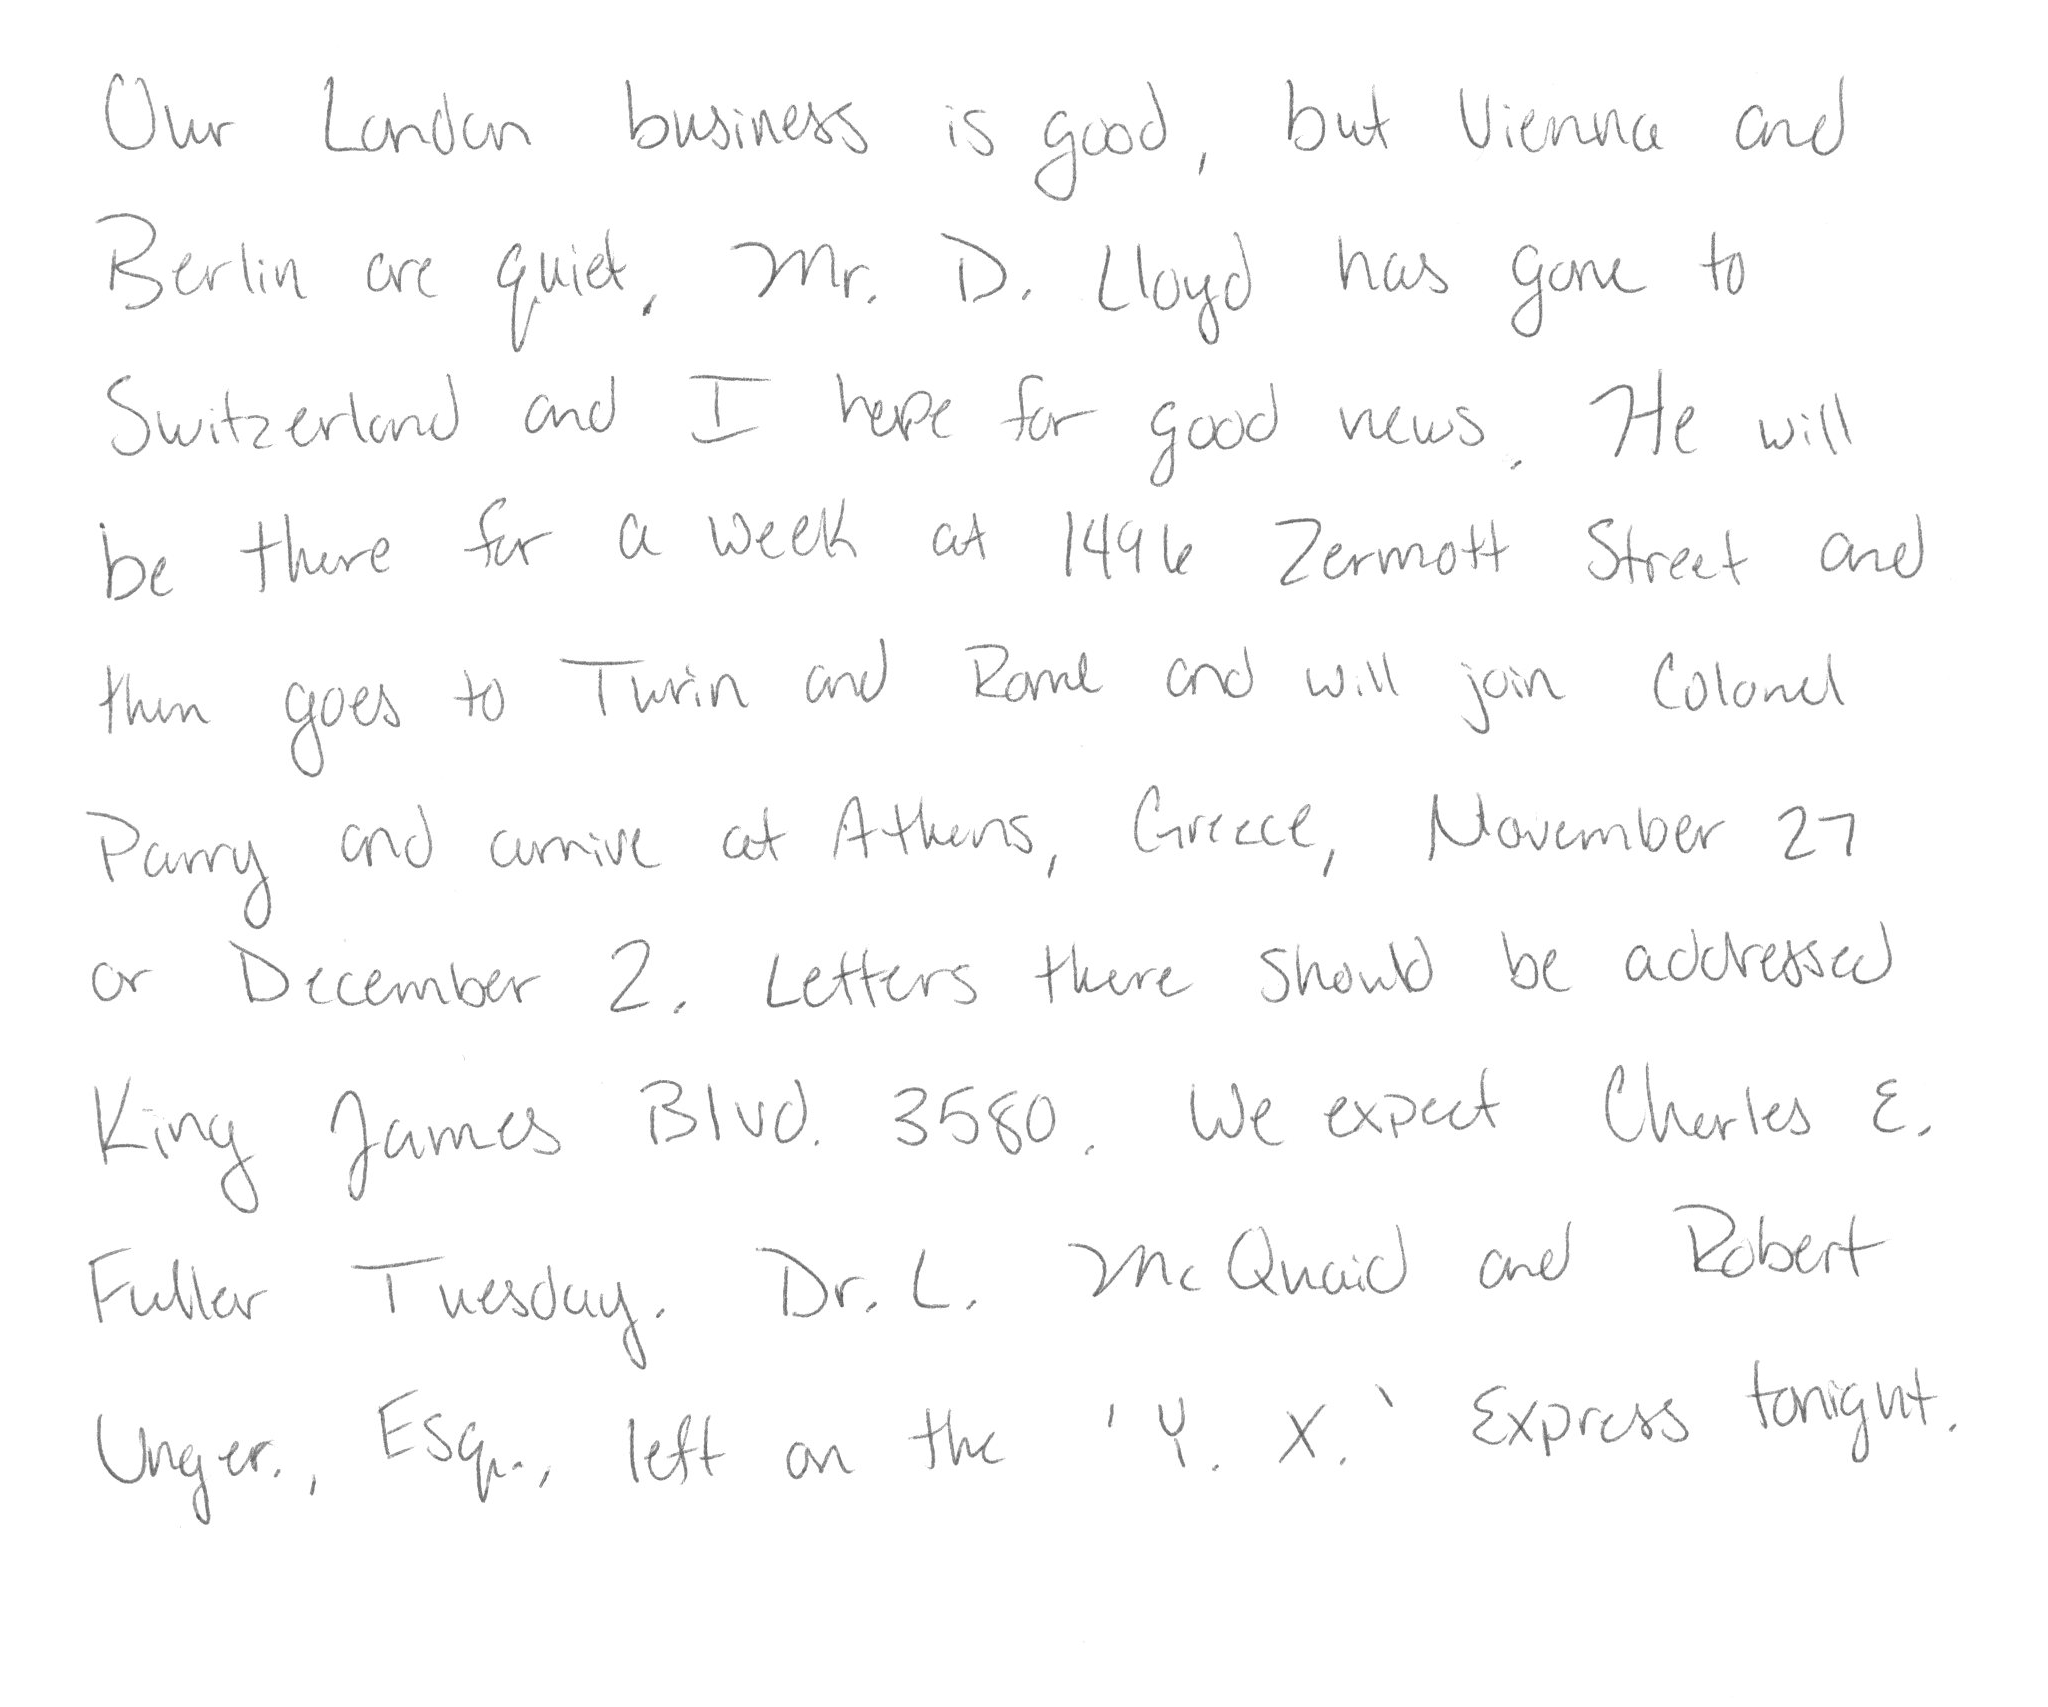 Our London business is good, but Vienna and
Berlin are quiet. Mr. D. Lloyd has gone to
Switzerland and I hope for good news. He will
be there for a week at 1496 Zermott Street and
then goes to Turin and Rome and will join Colonel
Parry and arrive at Athens, Greece, November 27
or December 2. Letters there should be addressed
King James Blvd. 3580. We expect Charles E.
Fuller Tuesday. Dr. L. McQuaid and Robert
Unger., Esq., left on the 'Y. X.' Express tonight.